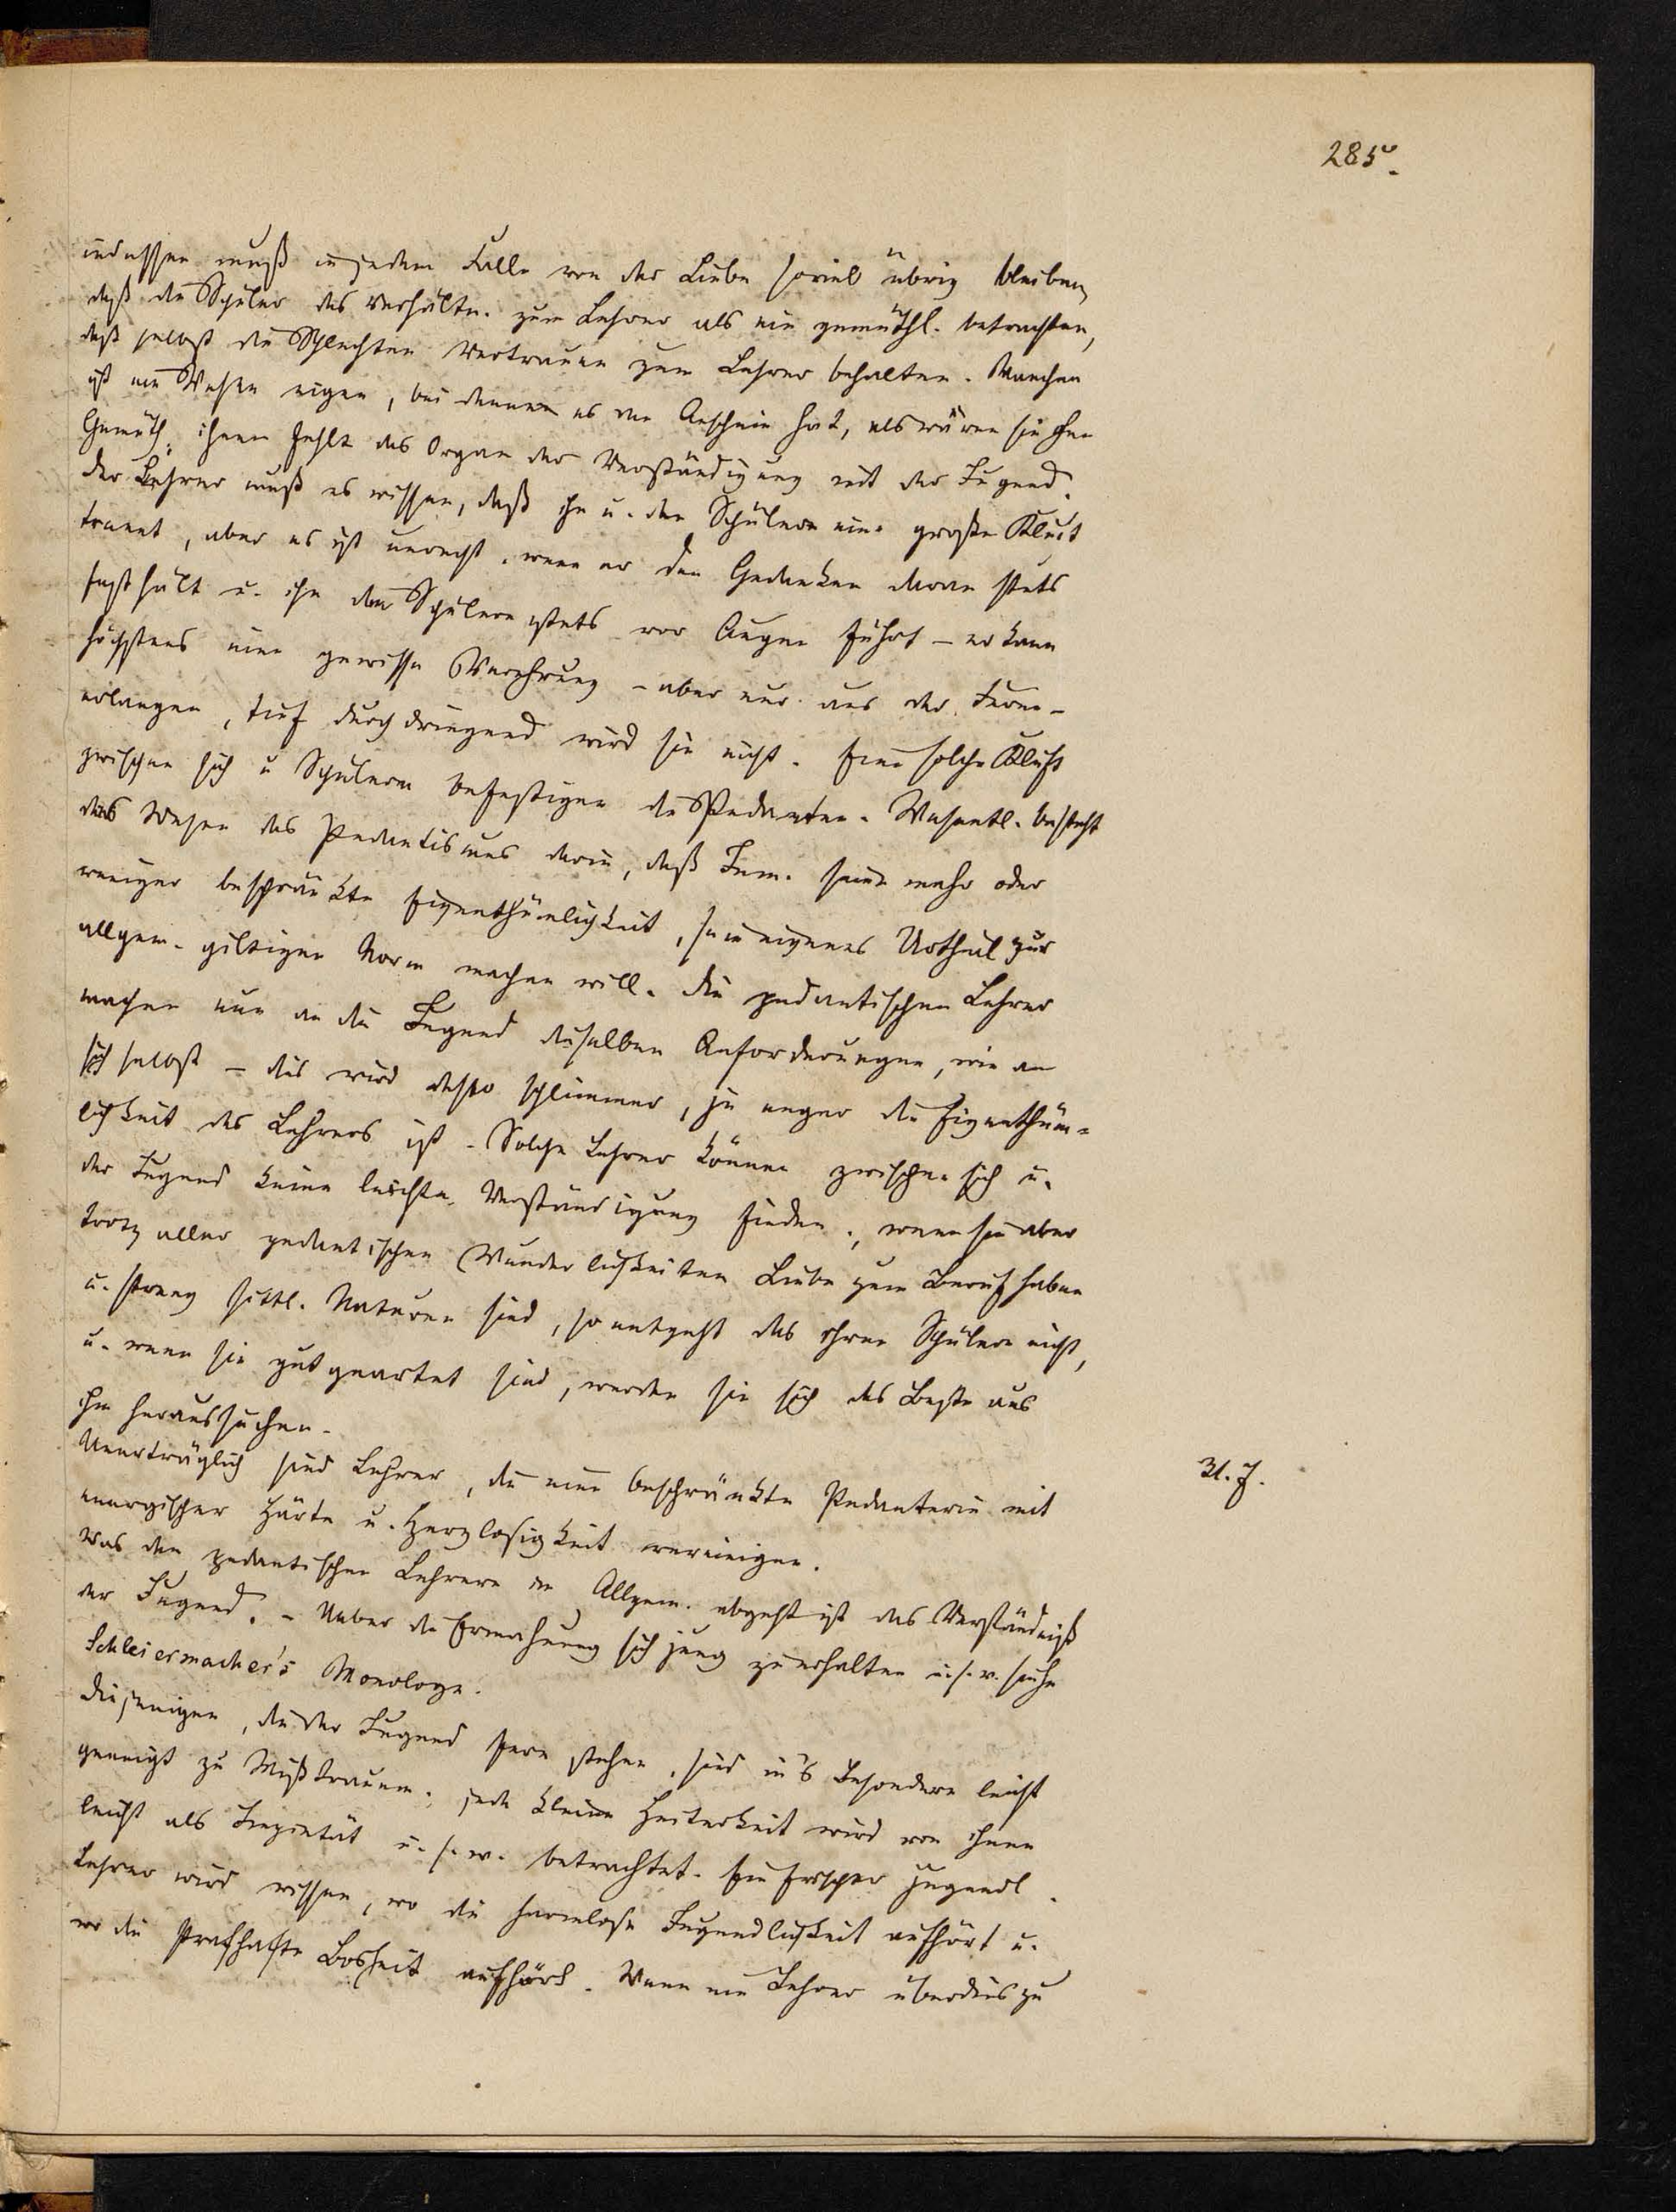 285.
indessen muß in jedem Falle von der Liebe soviel übrig bleiben,
daß die Schüler das Verhältn. zum Lehrer als ein gemüthl. betrachten,
daß selbst die Schlechten Vertrauen zum Lehrer behalten. Manchen
ist ein Wesen eigen, bei denen es den Anschein hat, als wären sie ohne
Gemüth, ihnen fehlt das Organ der Verständigung mit der Jugend.
Der Lehrer muß es wissen, daß ihn u. den Schülern eine große Kluft
trennt, aber es ist unrecht, wenn er den Gedanken daran stets
festhält u. ihn den Schülern stets vor Augen führt – er kann
höchstens eine gewisse Verehrung – aber nur aus der Ferne –
erlangen, tief durchdringend wird sie nicht. Eine solche Kluft
zwischen sich u Schülern befestigen die Pedanten. Wesentl. besteht
das Wesen des Pedantismus darin, daß Jem. seine mehr oder
weniger beschränkte Eigenthümlichkeit, sein eigenes Urtheil zur
allgem. giltigen Norm machen will. Die pedantischen Lehrer
machen nun an die Jugend dieselben Anforderungen, wie an
sich selbst – dies wird desto schlimmer, je enger die Eigenthüm-
lichkeit des Lehrers ist. Solche Lehrer können zwischen sich u.
der Jugend keine leichte Verständigung finden, wenn sie aber
trotz aller pedantischen Wunderlichkeiten Liebe zum Beruf haben
u. streng sittl. Naturen sind, so entgeht das ihren Schülern nicht,
u. wenn sie gut geartet sind, werden sie sich das Beste aus
ihm heraussuchen.
Unerträglich sind Lehrer, die eine beschränkte Pedanterie mit
31. J.
energischer Härte u. Herzlosigkeit vereinigen.
Was den pedantischen Lehrern im Allgem. abgeht ist das Verständniß
der Jugend. – Ueber die Ermahnung sich jung zu erhalten u. s. w. siehe
Schleiermacher's Monologe.
Diejenigen, die der Jugend fern stehen, sind in's Besondere leicht
geneigt zu Mißtrauen, jede kleine Heiterkeit wird von ihnen
leicht als Impietät u. s. w. betrachtet. Ein frischer jugendl.
Lehrer wird wissen, wo die harmlose Jugendlichkeit aufhört u.
wo die Bosheit aufhört. Wenn ein Lehrer überdies zu